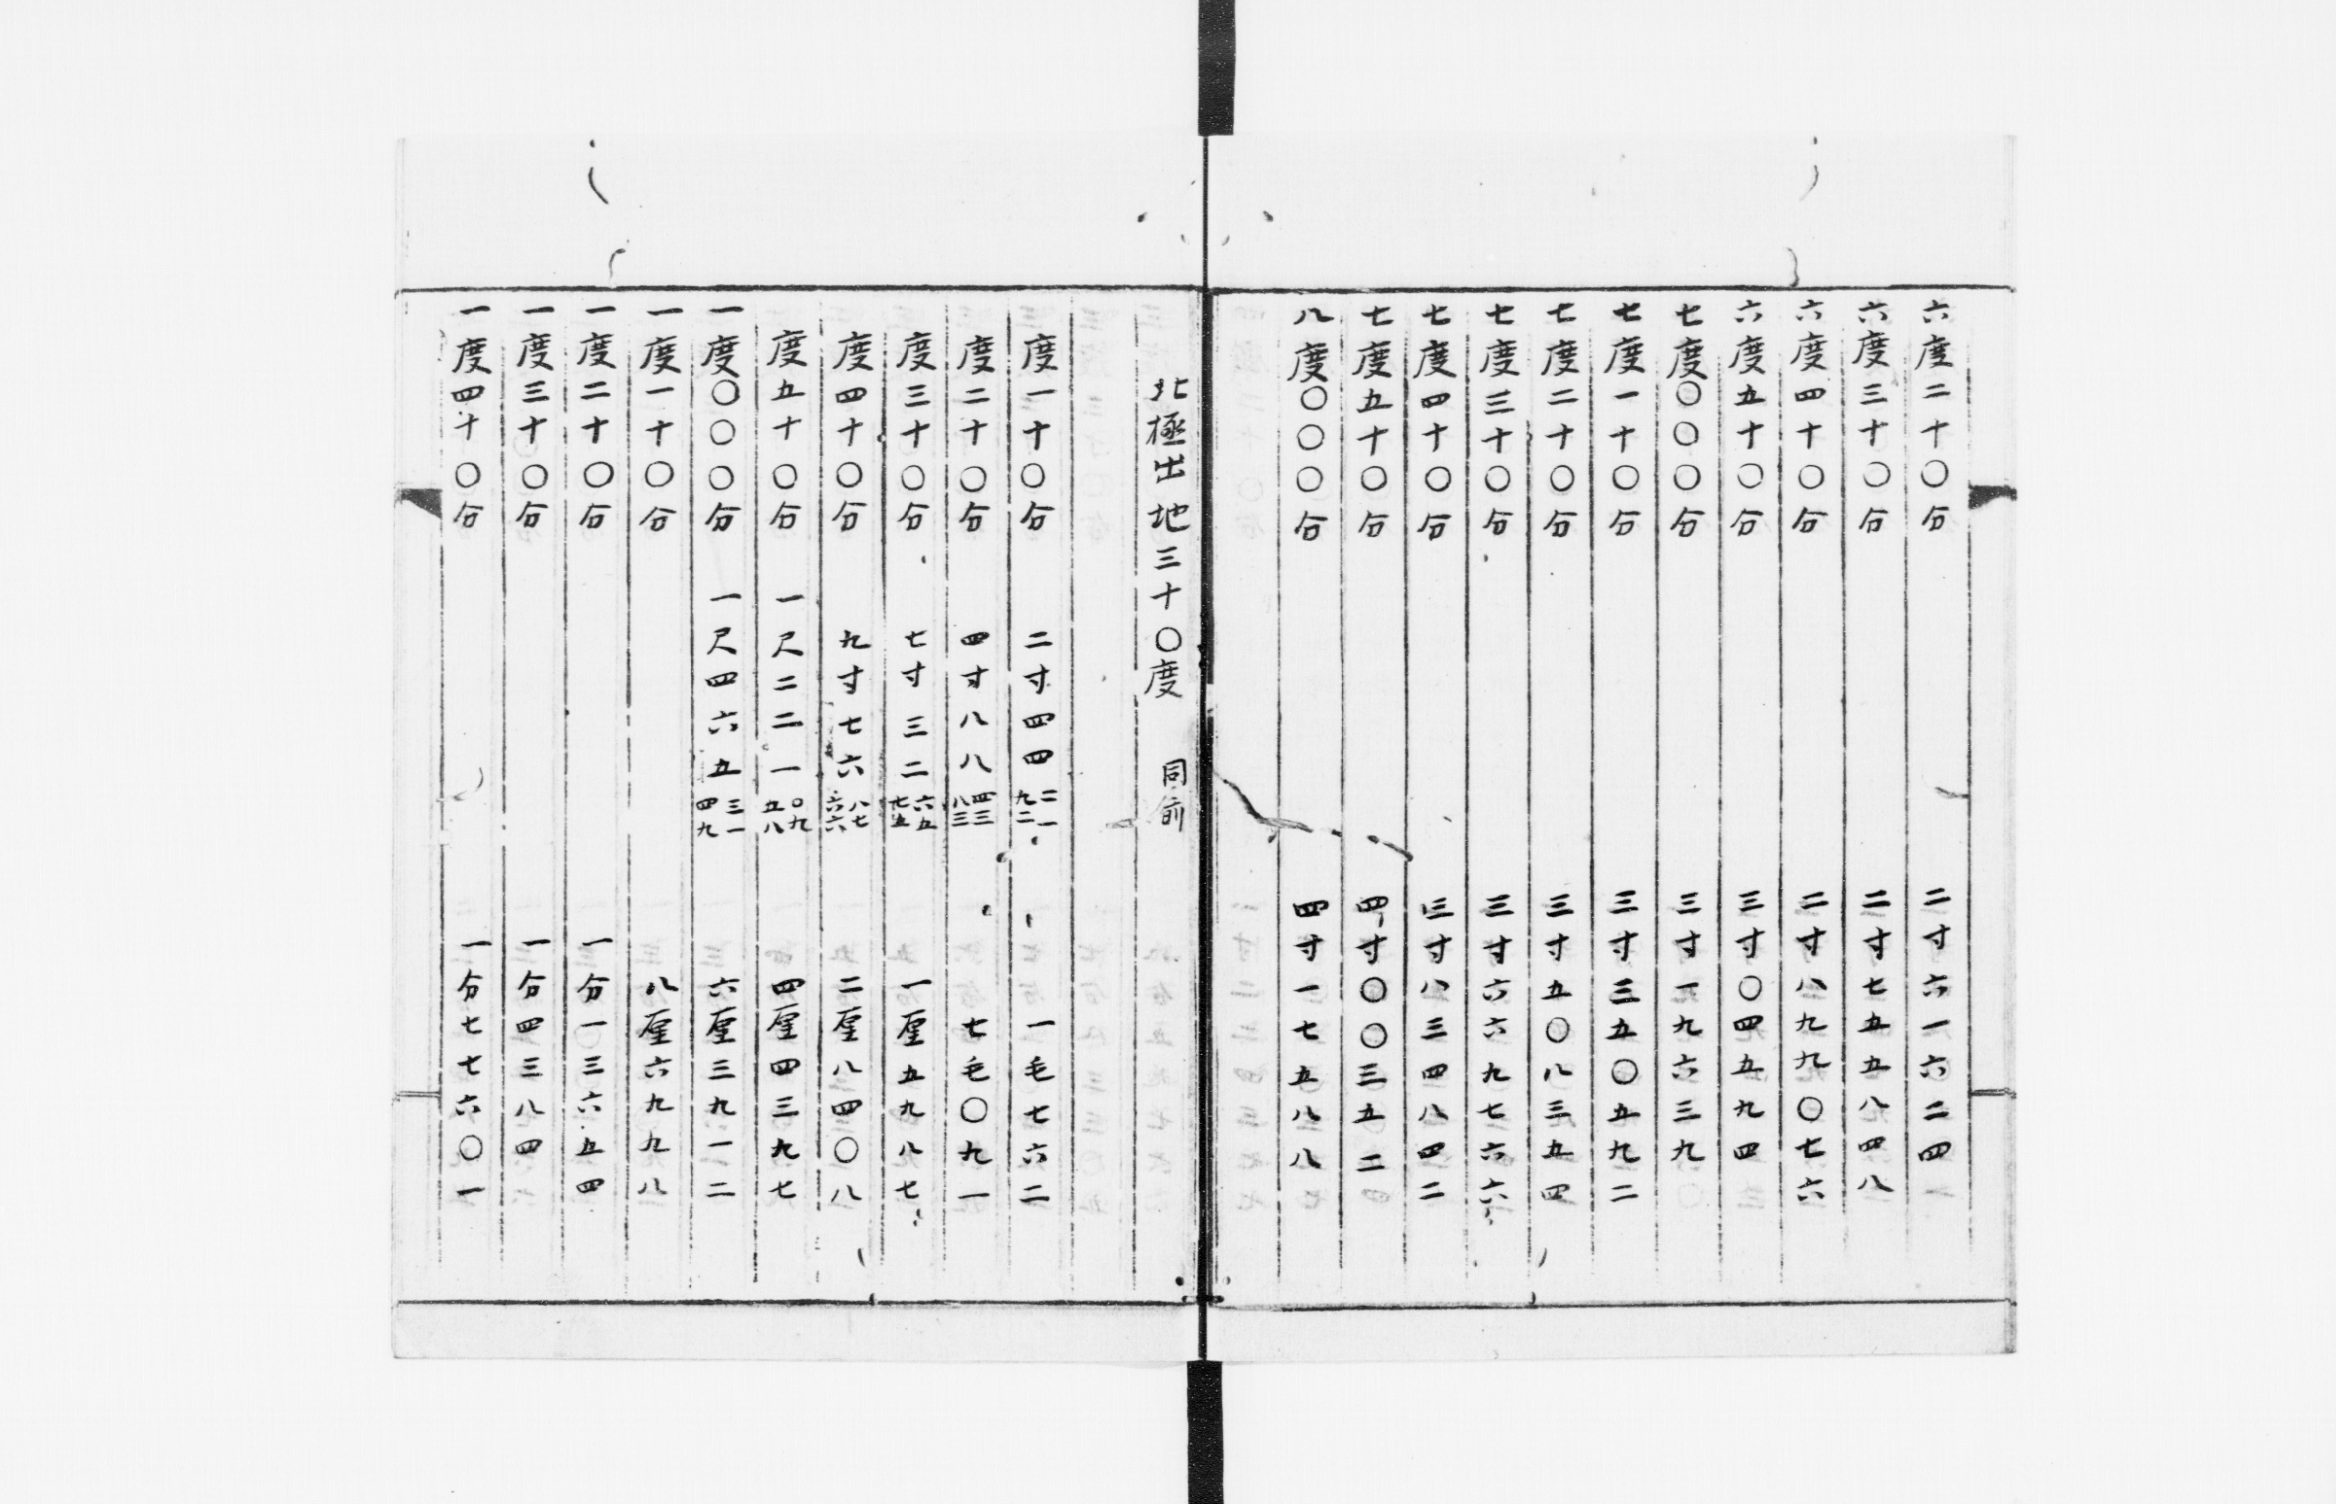 六度二十〇分 二寸六一六二四
六度三十〇分 二寸七五五八四八
六度四十〇分 二寸八九九〇七六
六度五十〇分 三寸〇四五九四
七度〇〇〇分 三寸一九六三九
七度一十〇分 三寸三五〇五九二
七度二十〇分 三寸五〇八三五四
七度三十〇分 三寸六六九七六六
七度四十〇分 三寸八三四八四二
七度五十〇分 四寸〇〇三五二
八度〇〇〇分 四寸一七五八八
北極出地三十〇度 同前
度一十〇分 二寸四四二一九二 一毛七六二
度二十〇分 四寸八八四三八三 七毛〇九一
度三十〇分 七寸三二六五七五 一厘五九八七
度四十〇分 九寸七六八七六六 二厘八四〇八
度五十〇分 一尺二二一〇九五八 四厘四三九七
一度〇〇〇分 一尺四六五三一四九 六厘三九一二
一度一十〇分 八厘六九九八
一度二十〇分 一分一三六五四
一度三十〇分 一分四三八四
一度四十〇分 一分七七六〇一